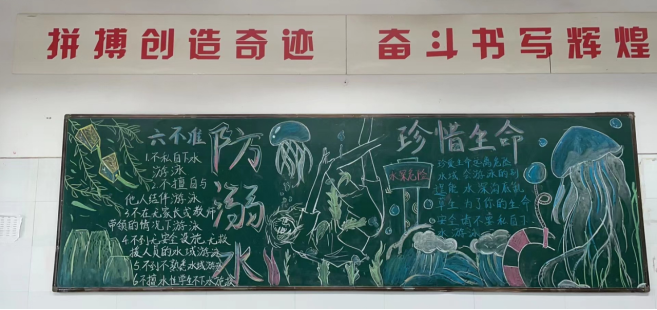 拼搏创造奇迹 奋斗书写辉煌
六不准
1.不私自下水
游泳
2.不擅自与
他人结伴游泳
3.不在无家长或教师
带领的情况下游泳
4.不到无安全设施无救
援人员的水域游泳
5.不到不熟悉水域游泳
6.不擅水性学生不下水施救
防溺水
珍惜生命
水深危险
珍爱生命远离危险
水域 游泳
水深
为了你的生命
安全请不要私自下
水游泳